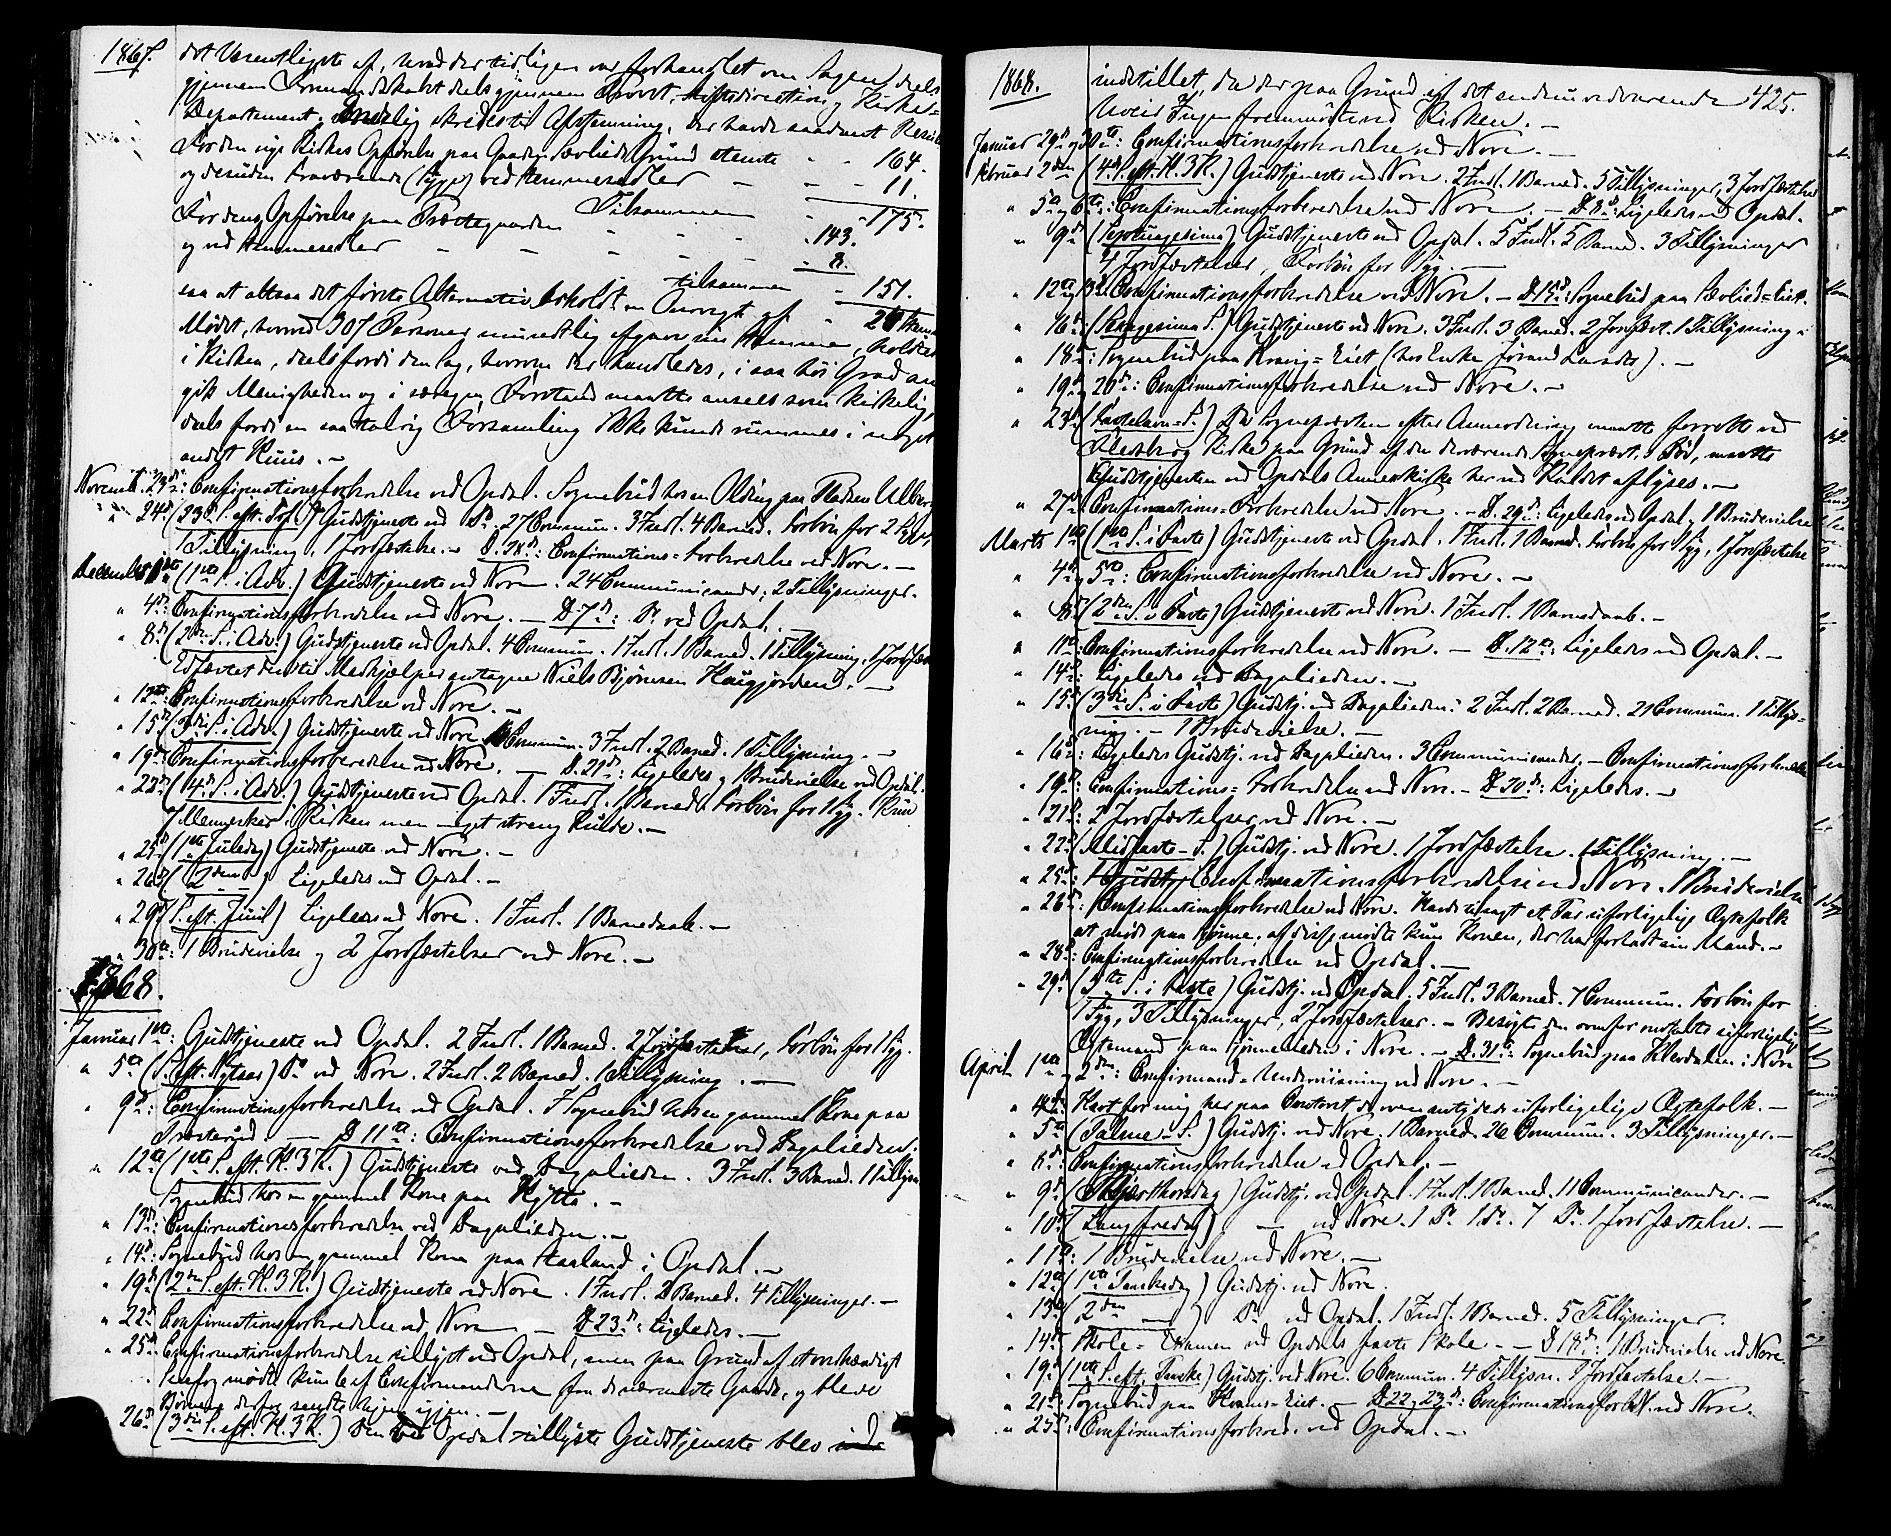 1867.
det Væsentligste af, hvad der tidligere var forhandlet om Sagen, dels
gjennem Formandskabet dels gjennem Provst, Stiftsdirection og Kirke-
Departement. Endelig skredes til Afstemning, der havde saadant
For den nye Kirkes Opførelse paa Grund stemte - - 164.
og desuden Fraværende (Syge) ved Stemmesedler - - - 11.
Tilsammen - 175.
For dens Opførelse paa - - - 143.
og ved Stemmesedler - - - - - 8.
tilsammen - 151.
saa at altsaa det første Alternativ beholdt en Overvægt af - 24
Mødet, hvorved 307 Personer mundtlig afgave sin Stemme, holdtes
i Kirken, dels fordi den Sag, hvorom der handledes, i saa høi Grad an
gik Menigheden og i særegen Forstand maatte ansees som kirkelig,
dels fordi en saa talrig Forsamling ikke kunde rummes i noget
andet Huus. -
Novemb. 23d: Confirmationsforberedelse ved Opdal. Sognebud hos en Olding paa
" 24d (23d S. eft. Tref.) Gudstjeneste ved Do. 27 Commun. 3 Indl. 4 Barned. Forbøn for 2 Syge,
1 Tillysning. 1 Jordfæstelse. - D. 28d: Confirmations-forberedelse ved Nore. -
December 1ste (1ste S. i Adv.) Gudstjeneste ved Nore. 24 Communicanter; 2 Tillysninger.
" 4de: Confirmationsforberedelse ved Nore. - D. 7d: Do ved Opdal. -
" 8d (2den S. i Adv.) Gudstjeneste ved Opdal. 4 Commun. 1 Indl. 1 Barned. 1 Tillysning. 1 Jordfæst.
Edfæstet den til Medhjælper antagne Niels Bjørnsen Haugjorden. -
" 12te: Confirmationsforberedelse ved Nore. -
" 15d (3die S. i Adv.) Gudstjeneste ved Nore. Commun. 3 Indl. 2 Barned. 1 Tillysning. -
" 19d: Confirmationsforberedelse ved Nore. - D. 21d: Ligeledes og 1 Brudevielse ved Opdal.
" 22d (4de S. i Adv.) Gudstjeneste ved Opdal. 1 Indl. 1 Barned. Forbøn for 1 Syg. Kun
7 Mennesker i Kirken men - get streng Kulde. -
" 25d (1ste Juledag) Gudstjeneste ved Nore. -
" 26d (2den - ) Ligeledes ved Opdal. -
" 29d (S. eft. Juul) Ligeledes ved Nore. 1 Indl. 1 Barnedaab. -
" 30te: 1 Brudevielse og 2 Jordfæstelser ved Nore. -
1868.
Januar 1ste: Gudstjeneste ved Opdal. 2 Indl. 1 Barned. 2 Jordfæstelser, Forbøn for 1 Syg.
" 5te (S. eft. Nytaar) Do ved Nore. 2 Indl. 2 Barned. 1 Tillysning. -
" 9d: Confirmationsforberedelse ved Opdal. Sognebud hos en gammel Kone paa
- D. 11te: Confirmationsforberedelse ved Dagalieden.
" 12te (1ste S. eft. H. 3 K.) Gudstjeneste ved Dagalieden. 3 Indl. 3 Barned. 1 Tillysn.
Sognebud hos en gammel Kone paa Hytte. -
" 13d: Confirmationsforberedelse ved Dagalieden. -
" 14d: Sognebud hos en gammel Kone paa Haaland i Opdal. -
" 19d (2den S. eft. H. 3 K.) Gudstjeneste ved Nore. 1 Indl. 2 Barned. 4 Tillysninger. -
" 22d Confirmationsforberedelse ved Nore - D. 23d: Ligeledes. -
" 25d: Confirmationsforberedelse tillyst ved Opdal, men paa Grund af
mødte kun 6 af Confirmanderne fra de nærmeste Gaarde, og bleve
Børnene derfor sendte hjem igjen. -
" 26d (3die S. eft. H. 3 K.) Den ved Opdal tillyste Gudstjeneste blev inde
1868.
425.
indstillet, da der paa Grund af det endnu vedvarende
Uveir Ingen fremmødte ved Kirken. -
Januar 29d og 30te: Confirmationsforberedelse ved Nore. -
Februar 2den (4d S. eft. H. 3 K.) Gudstjeneste ved Nore. 2 Indl. 1 Barned. 5 Tillysninger, 3 Jordfæstelser
" 5te og 6te: Confirmationsforberedelse ved Nore. - D. 8d: Ligeledes ved Opdal.
" 9d (Septuagesima) Gudstjeneste ved Opdal. 5 Indl. 5 Barned. 3 Tillysninger
4 Jordfæstelser, Forbøn for 1 Syg. -
" 12te og 13d: Confirmationsforberedelse ved Nore. - D. 15d: Sognebud paa
" 16d (Sexagesima S.) Gudstjeneste ved Nore. 3 Indl. 3 Barned. 2 Jordfæst. 1 Tillysning.
" 18d: Sognebud paa Kravig-Eiet (hos Enke Jørand). -
" 19d og 20d: Confirmationsforberedelse ved Nore. -
" 23d (Fastelavns-S.) Da Sognepræsten efter Anmodning maatte forrette ved
Flesberg Kirke paa Grund af den derværende Sognepræst. Død, maatte
Gudstjenesten ved Opdals Annexkirke her ved Kaldet aflyses. -
" 27d Confirmations-Forberedelse ved Nore. - D. 29d: Ligeledes ved Opdal og 1 Brudevielse
Marts 1ste (1ste S. i Faste) Gudstjeneste ved Opdal. 1 Indl. 1 Barned. Forbøn for 1 Syg, 1 Jordfæstelse
" 4de og 5te: Confirmationsforberedelse ved Nore. -
" 8d (2den S. i Faste) Gudstjeneste ved Nore. 1 Indl. 1 Barnedaab. -
" 11te: Confirmationsforberedelse ved Nore. - D. 12te: Ligeledes ved Opdal. -
" 14d: Ligeledes ved Dagalieden. -
" 15d (3die S. i Faste) Gudstj. ved Dagalieden: 2 Indl. 2 Barned. 21 Commun. 1 Tillys-
ning. - 1 Brudevielse. -
" 16d: Ligeledes Gudstj. ved Dagalieden. 3 Communicanter, - Confirmationsforberedelse
" 19d: Confirmations-forberedelse ved Nore. - D. 20d: Ligeledes. -
" 21d: 2 Jordfæstelser ved Nore. -
" 22d (Midfaste-S.) Gudstj. ved Nore. 1 Jordfæstelse. 1 Tillysning. -
" 25d: Gudstj. Confirmationsforberedelse ved Nore. 1 Brudevielse
" 26d: Confirmationsforberedelse ved Nore. Havde tilsagt et Par uforligelige Ægtefolk
at møde paa ; af disse mødte kun Konen, der har forladt sin Mand. -
" 28d: Confirmationsforberedelse ved Opdal. -
" 29d (5te S. i Faste) Gudstj. ved Opdal. 5 Indl. 3 Barned. 7 Commun. Forbøn for
1 Syg, 3 Tillysninger, 2 Jordfæstelser. - Besøgte den ovenfor omtalte uforligelige
Ægtemand paa i Nore. - D. 31d: Sognebud paa i Nore
April 1ste og 2den: Confirmand-Underviisning ved Nore. -
" 4de: Havt for mig her paa Contoret de ovenantydede uforligelige Ægtefolk. -
" 5te (Palme-S.) Gudstj. ved Nore. 1 Barned. 26 Commun. 3 Tillysninger. -
" 8d: Confirmationsforberedelse ved Opdal. -
" 9d (Skjærthorsdag) Gudstj. ved Opdal. 1 Indl. 1 Barned. 11 Communicanter. -
" 10d (Langfredag) - ved Nore. 1 Do 1 Do. 7 Do. 1 Jordfæstelse. -
" 11te: 1 Brudevielse ved Nore. -
" 12te (1ste Paaskedag) Gudstj. ved Nore.
" 13d (2den - ) Do ved Opdal. 1 Indl. 1 Barned. 5 Tillysninger.
" 14d: Skole-Examen ved Opdals faste Skole. - D. 18d: 1 Brudevielse ved Nore.
" 19d (1ste S. eft. Paaske) Gudstj. ved Nore. 6 Commun. 4 Tillysn. 1 Jordfæstelse. -
" 21d: Sognebud paa - D. 22 og 23d: Confirmationsforb. ved Nore.
" 25d: Confirmationsforbered. ved Opdal. -